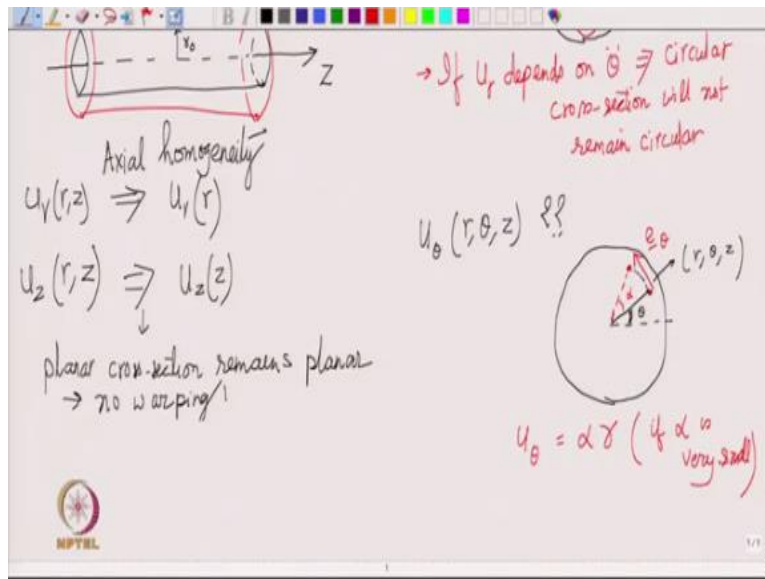 r₀
Z
Axial homogeneity
u_r(r,z) ⇒ u_r(r)
u_z(r,z) ⇒ u_z(z)
planar cross-section remains planar
→ no warping
→ If u_r depends on θ ⇒ circular
cross-section will not
remain circular
u_θ (r,θ,z) ??
e_θ
(r,θ,z)
α
θ
u_θ = α r ( if α is
very small)
NPTEL
1/1
1